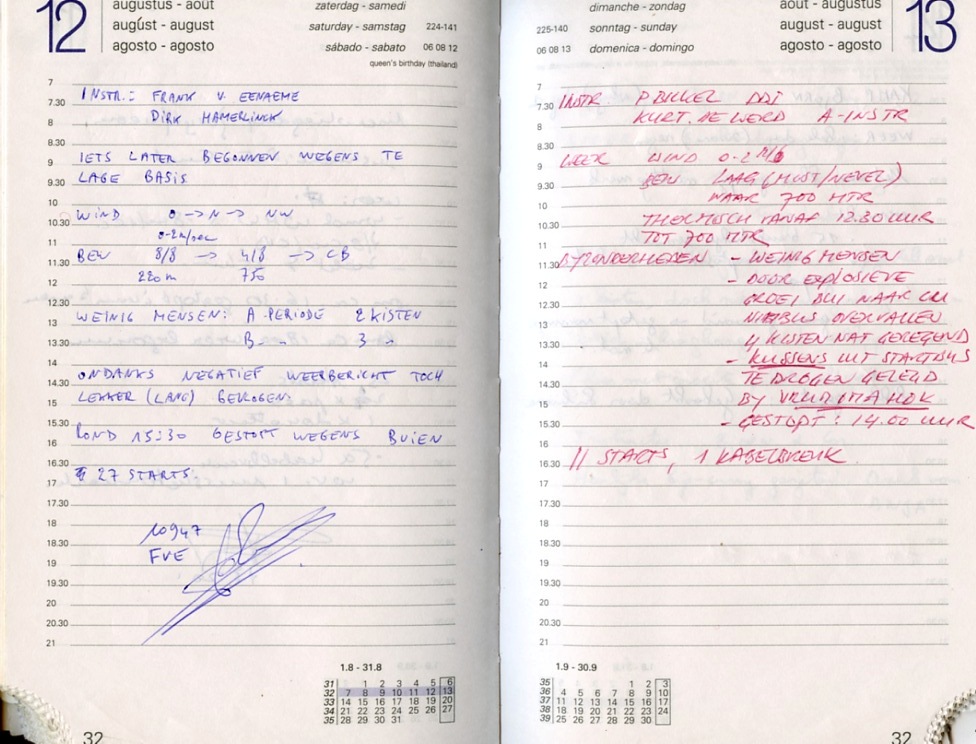 12
augustus - août
august - august
agosto - agosto
zaterdag - samedi
saturday - samstag 224-141
sábado - sabato 06 08 12
queen's birthday (thailand)
7
7.30 INSTR.: FRANK V. EENAEME
8 DIRK HAMERLINCK
8.30
9 IETS LATER BEGONNEN WEGENS TE
9.30 LAGE BASIS
10
10.30 WIND 0 -> N -> NW
11 0-2m/sec
11.30 BEW 8/8 -> 4/8 -> CB
12 220m 750
12.30
13 WEINIG MENSEN: A-PERIODE 2 KISTEN
13.30 B- 3 -
14
14.30 ONDANKS NEGATIEF WEERBERICHT TOCH
15 LEKKER (LANG) GEVLOGEN.
15.30
16 ROND 15:30 GESTOPT WEGENS BUIEN
16.30
17 27 STARTS.
17.30
18 10947
18.30 FVE
19
19.30
20
20.30
21
1.8 - 31.8
31 1 2 3 4 5 6
32 7 8 9 10 11 12 13
33 14 15 16 17 18 19 20
34 21 22 23 24 25 26 27
35 28 29 30 31
32
13
dimanche - zondag
225-140 sonntag - sunday
06 08 13 domenica - domingo
août - augustus
august - august
agosto - agosto
7
7.30 INSTR P. BICKEL DDI
8 KURT. DE WERD A-INSTR
8.30
9 WEER WIND 0-2 M/S
9.30 BEW LAAG (MIST/NEVEL)
10 NAAR 700 MTR
10.30 THERMISCH VANAF 12.30 UUR
11 TOT 700 MTR
11.30 BYZONDERHEDEN - WEINIG MENSEN
12 - DOOR EXPLOSIEVE
12.30 GROEI CU NAAR CU
13 NIMBUS OVERVALLEN
13.30 4 KISTEN NAT GEREGEND
14 - KUSSENS UIT STARTBUS
14.30 TE DROGEN GELEGD
15 BY HOK
15.30 - GESTOPT: 14.00 UUR
16
16.30 11 STARTS, 1 KABELBREUK.
17
17.30
18
18.30
19
19.30
20
20.30
21
1.9 - 30.9
35 1 2 3
36 4 5 6 7 8 9 10
37 11 12 13 14 15 16 17
38 18 19 20 21 22 23 24
39 25 26 27 28 29 30
32